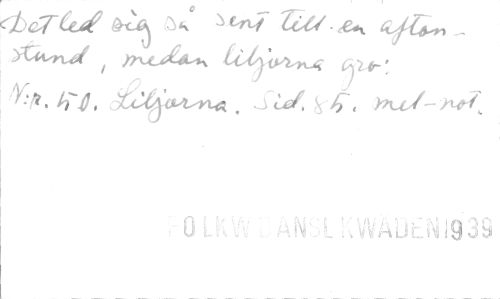 Det led sig så sent till en afton-
stund, medan liljorna gro:
N:r. 50. Liljorna. Sid. 85. mel-not.
FOLKW DANSLKWÄDEN 1939